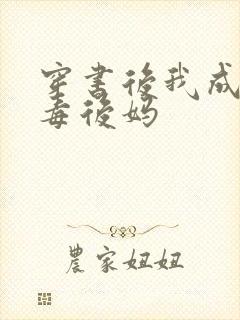 穿書後我成
毒後妈
農家妞妞